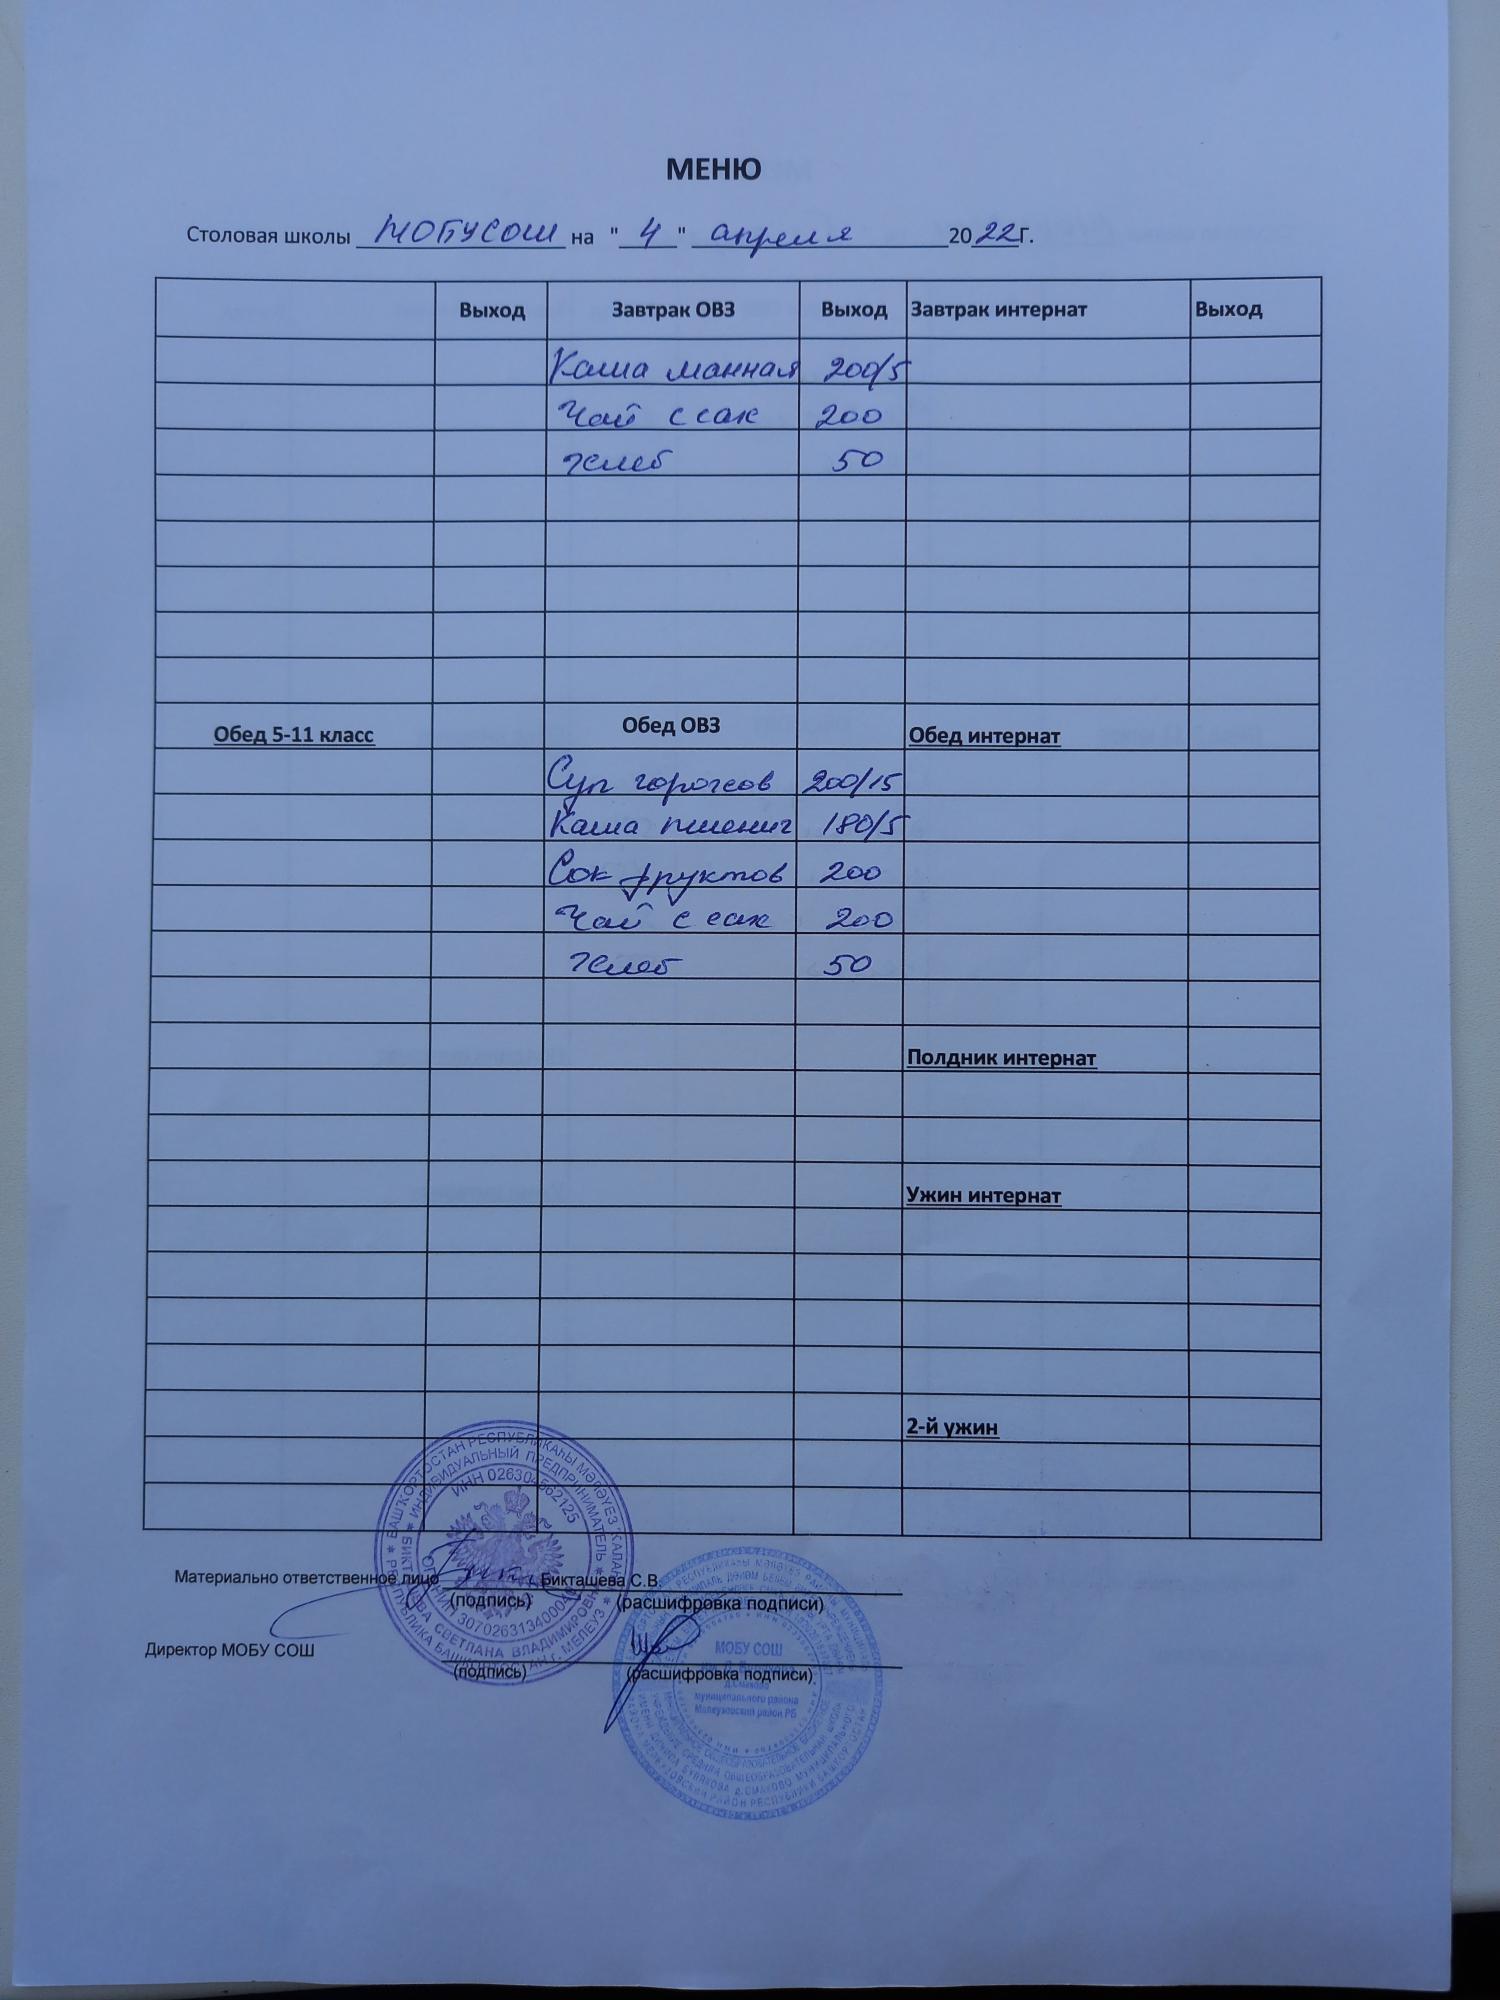 МЕНЮ
Столовая школы МОБУСОШ на "4" апреля 2022г.
Выход Завтрак ОВЗ Выход Завтрак интернат Выход
Каша манная 200/5
Чай с сах 200
хлеб 50
Обед 5-11 класс Обед ОВЗ Обед интернат
Суп горохов 200/15
Каша пшенич 180/5
Сок фруктов 200
Чай с сах 200
хлеб 50
Полдник интернат
Ужин интернат
2-й ужин
БАШҠОРТОСТАН РЕСПУБЛИКАҺЫ МӘЛӘҮЕЗ ҠАЛАҺЫ
ИНДИВИДУАЛЬНЫЙ ПРЕДПРИНИМАТЕЛЬ
СВЕТЛАНА ВЛАДИМИРОВНА
РЕСПУБЛИКА БАШКОРТОСТАН г. МЕЛЕУЗ
Материально ответственное лицо Бикташева С.В.
(подпись) (расшифровка подписи)
Директор МОБУ СОШ
(подпись) (расшифровка подписи)
МОБУ СОШ
муниципального района
Мелеузовский район РБ